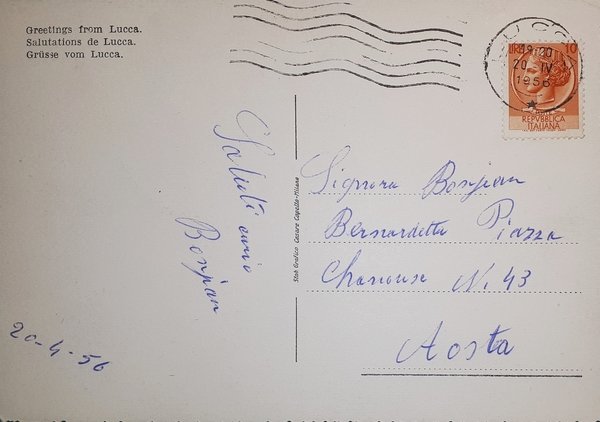 Greetings from Lucca.
Salutations de Lucca.
Grüsse vom Lucca.
LUCCA
19-20
20 IV
1956
LIRE 10
REPVBBLICA
ITALIANA
Saluti
Bonjean
20-4-56
Stab Grafico Cesare Capello-Milano
Signora Bonjean
Bernardetta Piazza
Chanoux N. 43
Aosta